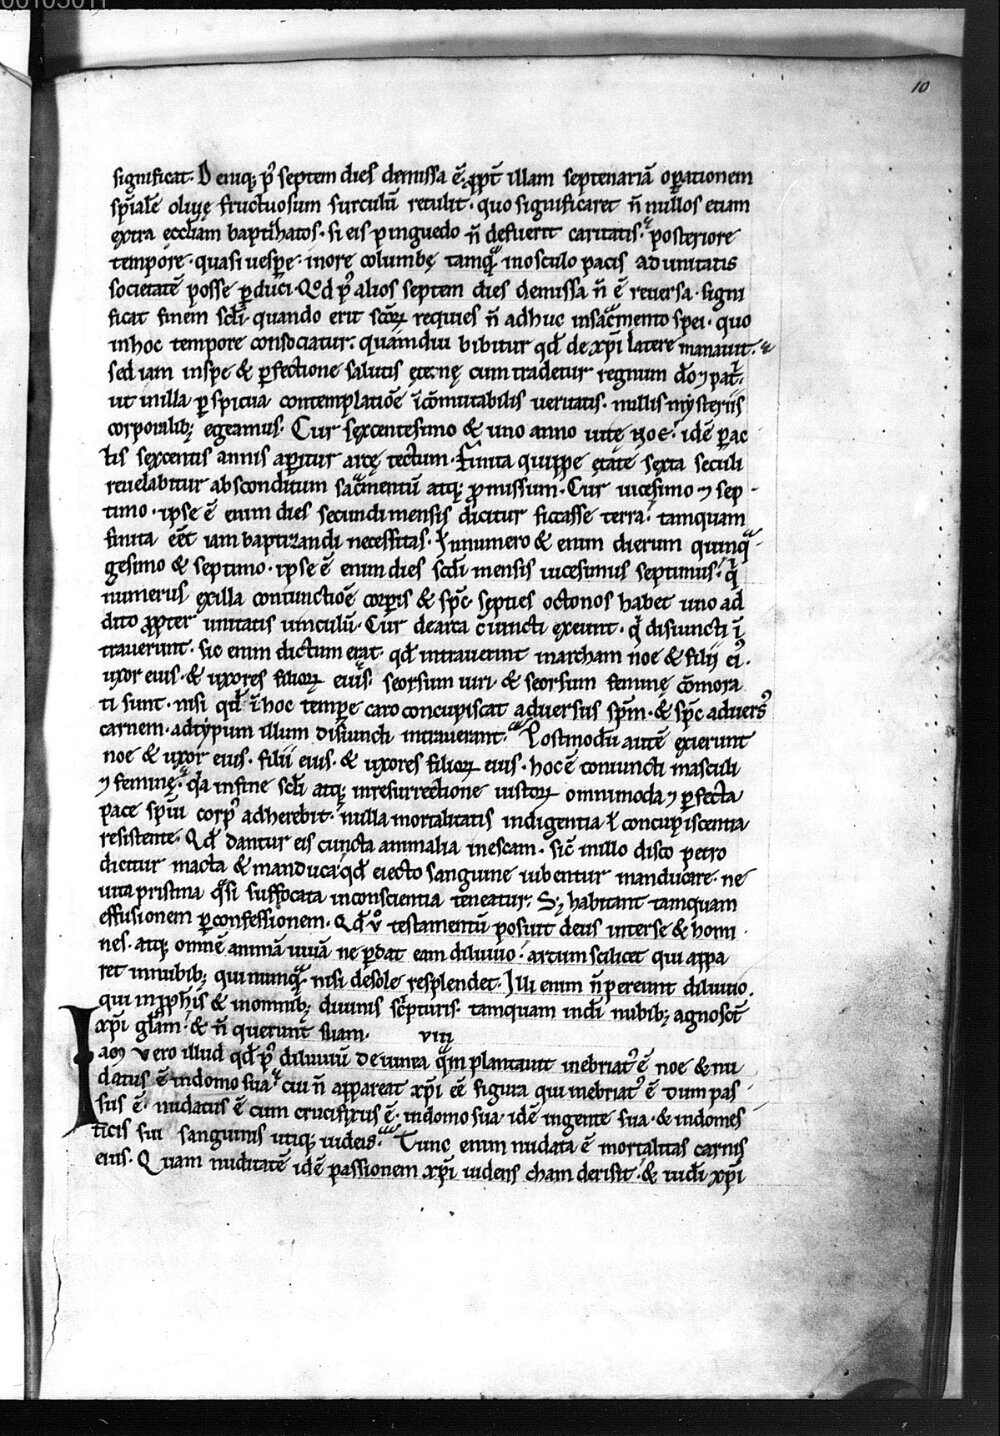 00105011
10
significat. Deniq; p᷒ septem dies demissa ē. ꝓpt̄ illam septenariā oꝑationem
sp̄ialē olivę fructuosum surculū retulit. quo significaret n̄ nullos etiam
extra eccl̄iam baptihatos. si eis pinguedo n̄ defuerit caritatis. posteriore
tempore. quasi uesꝑe. inore columbę tamquā inosculo pacis ad unitatis
societatē posse ꝑduci. Qd̄ p᷒ alios septem dies demissa n̄ ē reuersa. signi
ficat finem scl̄i. quando erit sc̄oꝝ requies n̄ adhuc insacͣmento spei. quo
inhoc tempore consociatur. quamdiu bibitur qd̄ de xp̄i latere manauit.
sed iam inspe & ꝑfectione salutis ęternę cum tradetur regnum dō ⁊ patͥ.
ut inilla ꝑspicua contemplatiōe īcōmutabilis ueritatis. nullis mysteriis
corporalib; egeamus. Cur sexcentesimo & uno anno uitę noe. idē ꝑac
tis sexcentis annis aꝑitur arcę tectum. Finita quippe etate sexta seculi
reuelabitur absconditum sacͣmentū atq; ꝓmissum. Cur uicesimo ⁊ sep
timo. ipse ē enim dies secundi mensis dicitur siccasse terra. tamquam
finita eēt iam baptizandi necessitas. Innumero & enim dierum quinqͣ
gesimo & septimo. ipse ē enim dies scd̄i mensis uicesimus septimus. qͥ
numerus exilla coniunctiōe corꝑis & sp̄c septies octonos habet uno ad
dito ꝓpter unitatis uinculū. Cur dearca c̄iuncti exeunt. qͥ disiuncti ī
trauerunt. sic enim dictum erat. qd̄ intrauerunt inarcham noe & filii ei᷒.
uxor eius. & uxores filioꝝ eius. seorsum uiri. & seorsum feminę cōmora
ti sunt. nisi qd̄ īhoc tempe caro concupiscat aduersus sp̄m. & sp̄c aduers᷒
carnem. adtypum illum disiuncti intrauerant. Postmodū autē exierunt
noe & uxor eius. filii eius. & uxores filioꝝ eius. hoc ē coniuncti masculi
⁊ feminę. qͣa infine scl̄i atq; inresurrectione iustoꝝ omnimoda ⁊ ꝑfecta
pace sp̄iui corp᷒ adherebit. nulla mortalitatis indigentia ł concupiscentia
resistente. Qd̄ dantur eis cuncta animalia inescam. sic̄ inillo disco petro
dicitur macta & manduca. qd̄ eiecto sanguine iubentur manducare. ne
uita pristina qͣsi suffocata inconscientia teneatur. S; habitant tamquam
effusionem ꝑ confessionem. Qd̄ v͛ testamentū posuit deus interse & homi
nes. atq; omnē animā uiuā ne ꝑdat eam diluuio. arcum scilicet qui appa
ret innubib; qui numqͣ. nisi desole resplendet. Illi enim n̄ pereunt diluuio.
qui inꝓph̄is & inomnib; diuinis scͥpturis. tamquam indi nubib; agnosct̄
xp̄i gl̄am. & n̄ querunt suam. VIII
Iam vero illud qd̄ p᷒ diluuiū deuinea qͣm plantauit inebriat᷒ ē noe & nu
datus ē indomo sua. cui n̄ appareat xp̄i eē figura qui inebriat᷒ ē dum pas
sus ē. nudatus ē cum crucifixus ē. indomo sua. idē ingente sua. & indomes
ticis sui sanguinis utiq; iudeis. Tunc enim nudata ē mortalitas carnis
eius. Quam nuditatē idē passionem xp̄i uidens cham derisit. & iudi xp̄i